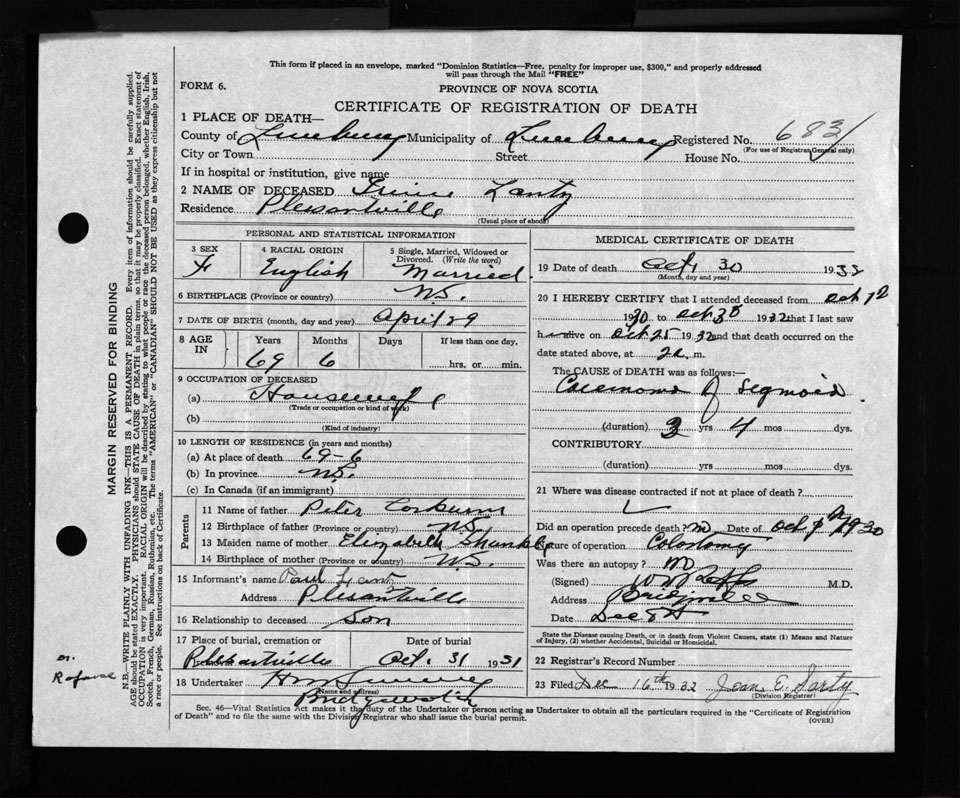 This form if placed in an envelope, marked "Dominion Statistics—Free, penalty for improper use, $300," and properly addressed
will pass through the Mail "FREE"
FORM 6.
PROVINCE OF NOVA SCOTIA
CERTIFICATE OF REGISTRATION OF DEATH
1 PLACE OF DEATH—
County of Lunenburg Municipality of Lunenburg Registered No. 683
(For use of Registrar General only)
City or Town Street House No.
If in hospital or institution, give name
2 NAME OF DECEASED
Residence Plesantville
(Usual place of abode)
PERSONAL AND STATISTICAL INFORMATION
3 SEX 4 RACIAL ORIGIN 5 Single, Married, Widowed or Divorced. (Write the word)
F English Married
6 BIRTHPLACE (Province or country) N.S.
7 DATE OF BIRTH (month, day and year) April 29
8 AGE IN Years Months Days If less than one day,
69 6 hrs. or min.
9 OCCUPATION OF DECEASED
(a) Housewife
(Trade or occupation or kind of work)
(b)
(Kind of industry)
10 LENGTH OF RESIDENCE (in years and months)
(a) At place of death 69-6
(b) In province N.S.
(c) In Canada (if an immigrant)
Parents
11 Name of father Peter
12 Birthplace of father (Province or country) N.S.
13 Maiden name of mother Elizabeth
14 Birthplace of mother (Province or country) N.S.
15 Informant's name Paul
Address Plesantville
16 Relationship to deceased Son
17 Place of burial, cremation or Date of burial
Oct. 31 1931
18 Undertaker
(Name and address)
Bridgewater
MEDICAL CERTIFICATE OF DEATH
19 Date of death Oct 30 1932
(Month, day and year)
20 I HEREBY CERTIFY that I attended deceased from Oct
1930 to Oct 30 1932 that I last saw
h alive on Oct 25 1932 and that death occurred on the
date stated above, at m.
The CAUSE OF DEATH was as follows:—
(duration) yrs 4 mos dys.
CONTRIBUTORY
(duration) yrs mos dys.
21 Where was disease contracted if not at place of death?
Did an operation precede death? Date of Oct 1930
Nature of operation Colostomy
Was there an autopsy? no
(Signed) M.D.
Address
Date
State the Disease causing Death, or in death from Violent Causes, state (1) Means and Nature
of Injury, (2) whether Accidental, Suicidal or Homicidal.
22 Registrar's Record Number
23 Filed Dec 16th 1932 Jean E.
(Division Registrar)
Sec. 46—Vital Statistics Act makes it the duty of the Undertaker or person acting as Undertaker to obtain all the particulars required in the "Certificate of Registration
of Death" and to file the same with the Division Registrar who shall issue the burial permit.
(OVER)
MARGIN RESERVED FOR BINDING
N.B.—WRITE PLAINLY WITH UNFADING INK—THIS IS A PERMANENT RECORD. Every item of information should be carefully supplied.
AGE should be stated EXACTLY. PHYSICIANS should STATE CAUSE OF DEATH in plain terms, so that it may be properly classified. Exact statement of
OCCUPATION is very important. RACIAL ORIGIN will be described by stating to what people or race the deceased person belonged, whether English, Irish,
Scotch, French, German, Russian, Ruthenian, etc. The terms "AMERICAN" or "CANADIAN" SHOULD NOT BE USED as they express citizenship but not
a race or people. See instructions on back of Certificate.